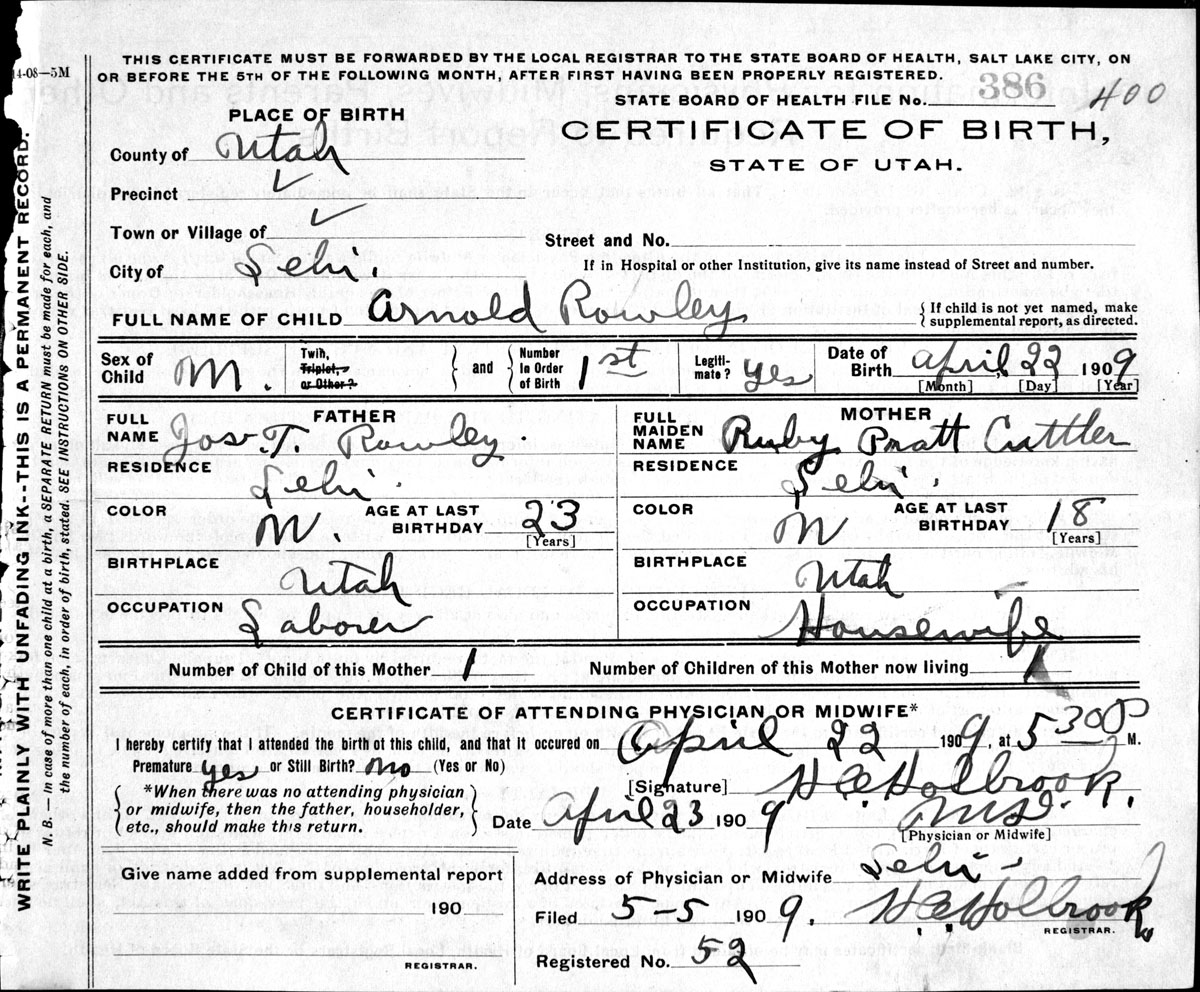 14-08—5M
THIS CERTIFICATE MUST BE FORWARDED BY THE LOCAL REGISTRAR TO THE STATE BOARD OF HEALTH, SALT LAKE CITY, ON
OR BEFORE THE 5TH OF THE FOLLOWING MONTH, AFTER FIRST HAVING BEEN PROPERLY REGISTERED.
STATE BOARD OF HEALTH FILE No. 386 400
PLACE OF BIRTH
CERTIFICATE OF BIRTH,
STATE OF UTAH.
County of Utah
Precinct ✓
Town or Village of ✓
Street and No.
City of Lehi.
If in Hospital or other Institution, give its name instead of Street and number.
FULL NAME OF CHILD Arnold Rowley. { If child is not yet named, make
supplemental report, as directed.
Sex of Child M. Twin, Triplet, or Other? } and { Number In Order of Birth 1st Legiti-mate? yes Date of Birth April, 22 1909
[Month] [Day] [Year]
FATHER
MOTHER
FULL NAME Jos. T. Rowley.
FULL MAIDEN NAME Ruby Pratt Cuttler
RESIDENCE Lehi.
RESIDENCE Lehi.
COLOR W AGE AT LAST BIRTHDAY 23 [Years]
COLOR W AGE AT LAST BIRTHDAY 18 [Years]
BIRTHPLACE Utah
BIRTHPLACE Utah
OCCUPATION Laborer
OCCUPATION Housewife
Number of Child of this Mother 1 Number of Children of this Mother now living 1
CERTIFICATE OF ATTENDING PHYSICIAN OR MIDWIFE*
I hereby certify that I attended the birth of this child, and that it occured on April 22 1909, at 5 30 P M.
Premature yes or Still Birth? No (Yes or No)
[Signature] H C Holbrook.
{ *When there was no attending physician
or midwife, then the father, householder,
etc., should make this return. }
Date April 23 1909 M.D.
[Physician or Midwife]
Give name added from supplemental report
190
REGISTRAR.
Address of Physician or Midwife Lehi.
Filed 5-5 1909. H C Holbrook
REGISTRAR.
Registered No. 52
WRITE PLAINLY WITH UNFADING INK--THIS IS A PERMANENT RECORD.
N. B.— In case of more than one child at a birth, a SEPARATE RETURN must be made for each, and
the number of each, in order of birth, stated. SEE INSTRUCTIONS ON OTHER SIDE.